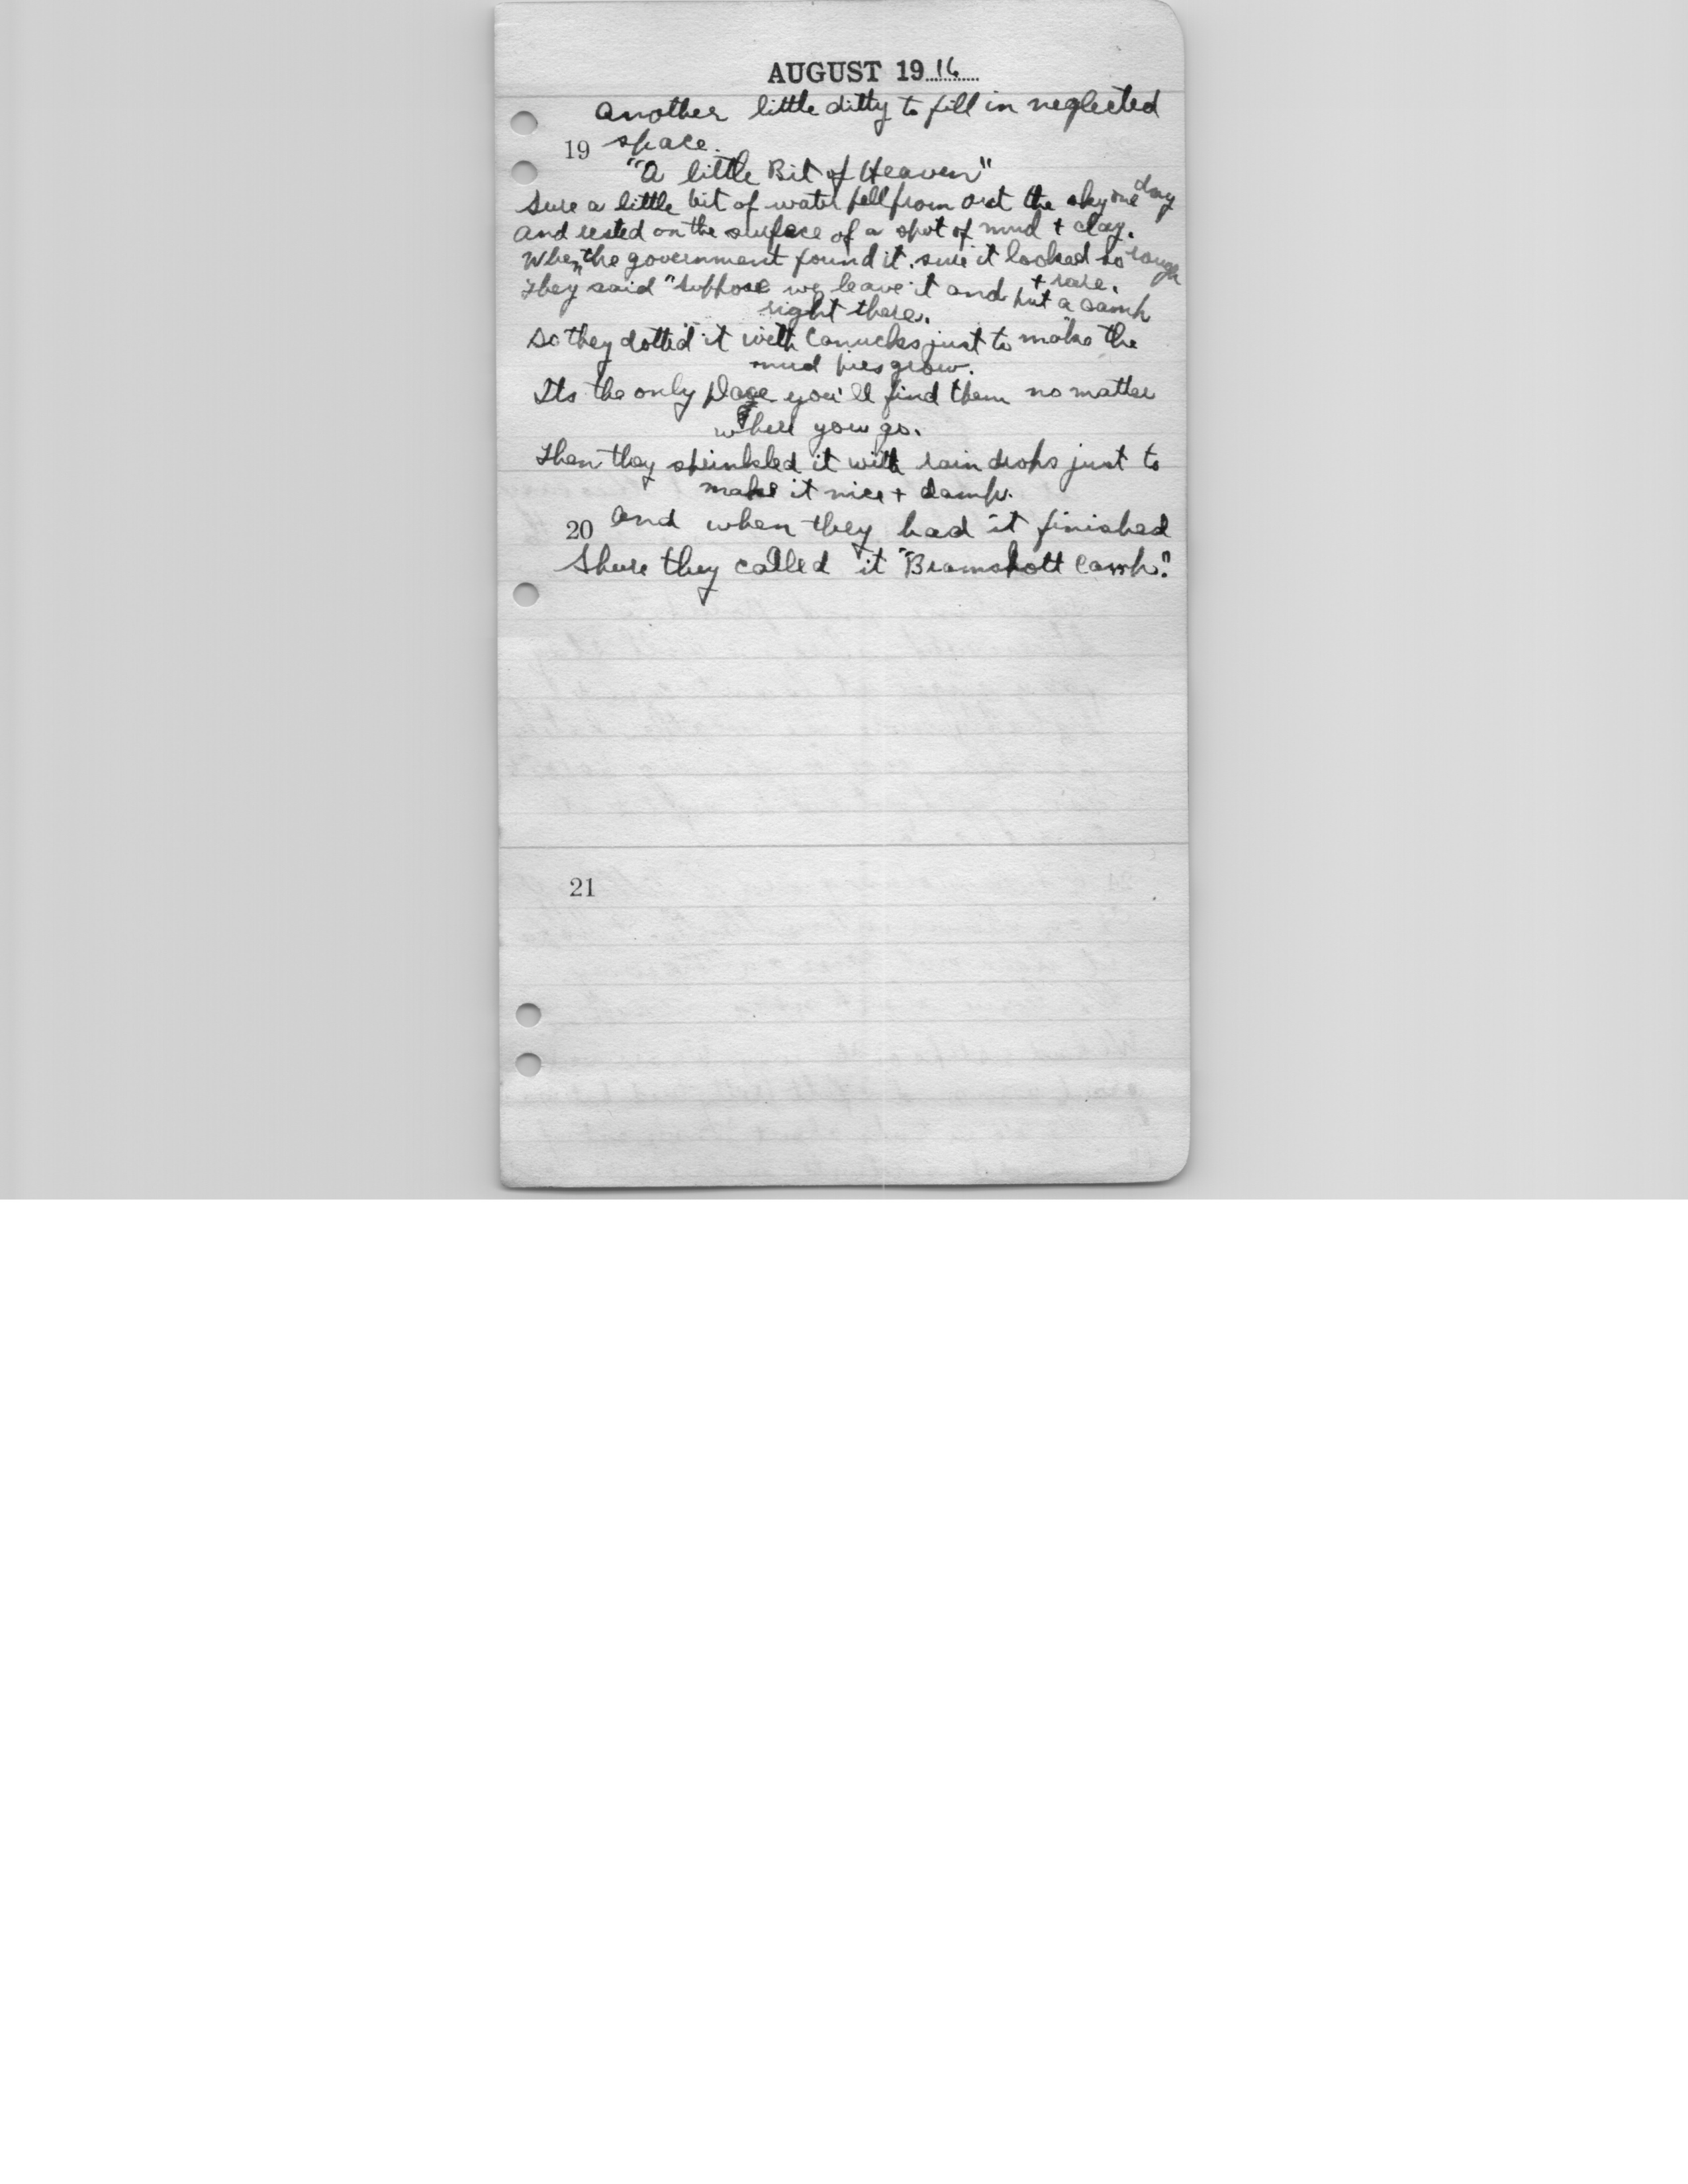 AUGUST 1916
Another little ditty to fill in neglected
19 space.
"A little Bit of Heaven"
Sure a little bit of water fell from out the sky one day
And rested on the surface of a spot of mud + clay.
When the government found it, sure it looked so rough
+ rare.
They said "suppose we leave it and put a camp
right there.
So they dotted it with Canucks just to make the
mud pies grow.
Its the only place you'll find them no matter
where you go.
Then they sprinkled it with rain drops just to
make it nice + damp.
20 And when they had it finished
Shure they called it "Bramshott Camp."
21